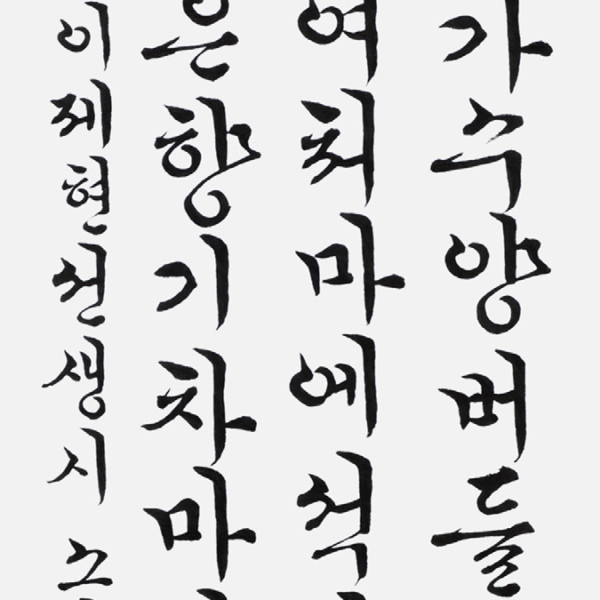 가수양버들
여처마에석
은향기차마
이제현선생시